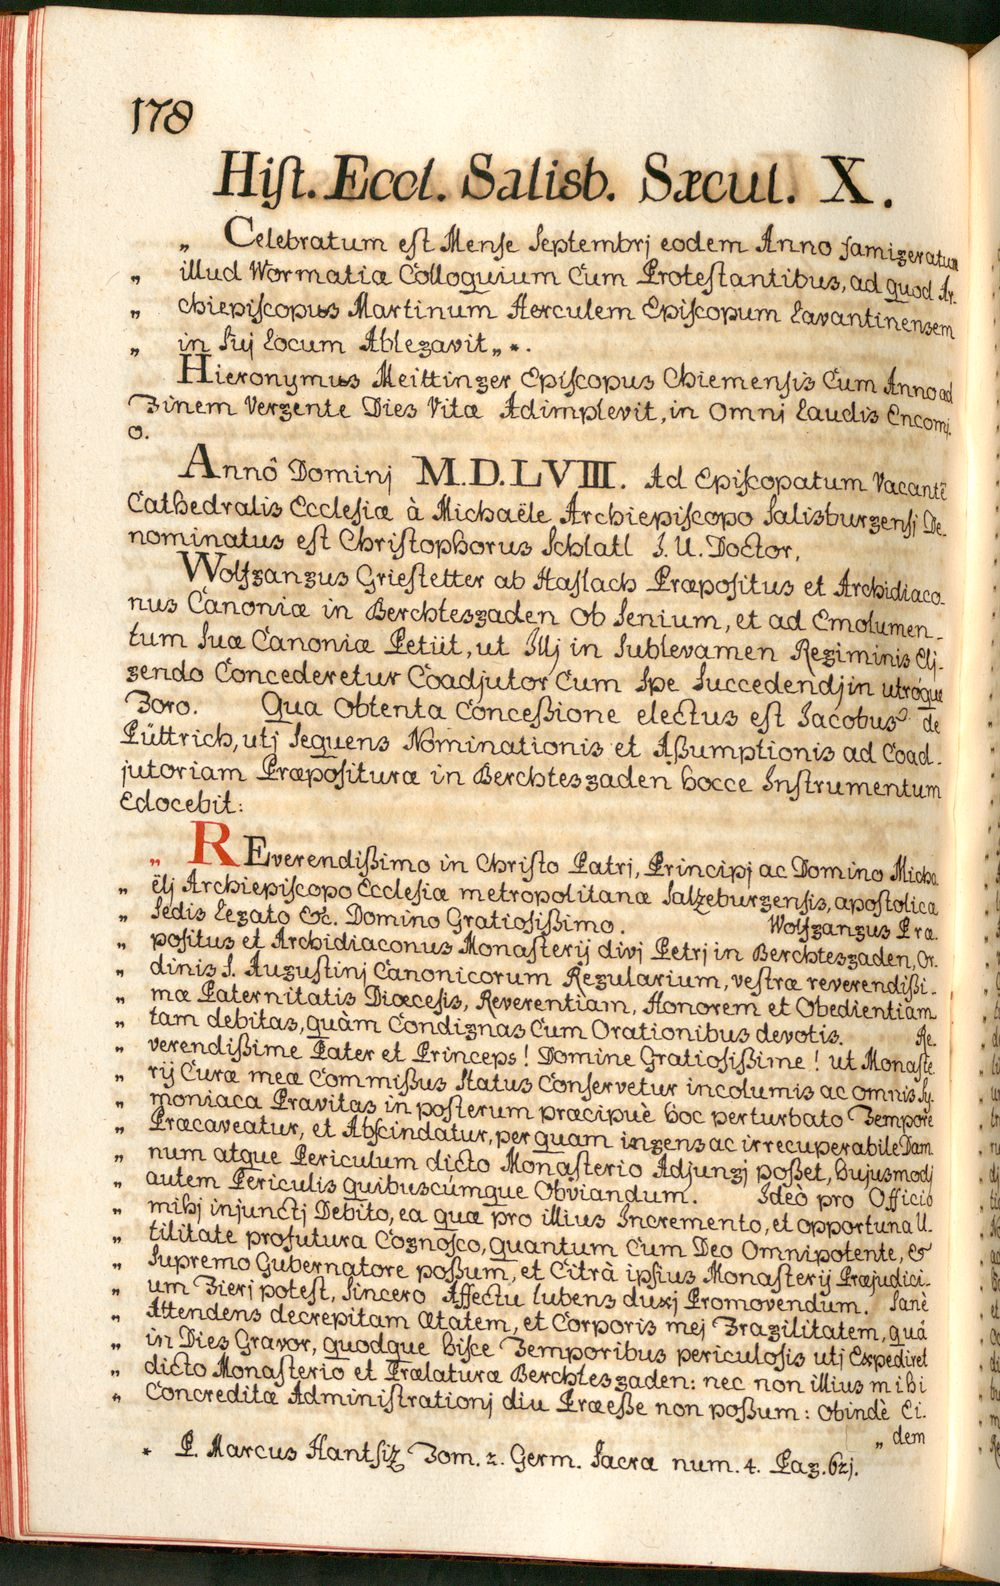 178
Hist. Eccl. Salisb. Sæcul. X.
„ Celebratum est Mense Septembrj eodem Anno famigeratum
„ illud Wormatiæ Colloquium Cum Protestantibus, ad quod Ar-
„ chiepiscopus Martinum Herculem Episcopum Lavantinensem
„ in Suj Locum Ablegavit „ *.
Hieronymus Meittinger Episcopus Chiemensis Cum Anno ad
Finem Vergente Dies Vitæ Adimplevit, in Omnj Laudis Encomj-
o.
Annô Dominj M.D.LVIII. Ad Episcopatum Vacantẽ
Cathedralis Ecclesiæ à Michaële Archiepiscopo Salisburgensj De-
nominatus est Christophorus Schlatl J. U. Doctor,
Wolfgangus Griestetter ab Haslach Præpositus et Archidiaco-
nus Canoniæ in Berchtesgaden Ob Senium, et ad Emolumen-
tum Suæ Canoniæ Petiit, ut Illj in Sublevamen Regiminis Elj-
gendo Concederetur Coadjutor Cum Spe Succedendj in utróque
Foro. Qua Obtenta Concessione electus est Jacobus de
Püttrich, utj Sequens Nominationis et Assumptionis ad Coad-
jutoriam Præposituræ in Berchtesgaden hocce Instrumentum
Edocebit:
„ REverendissimo in Christo Patrj, Principj ac Domino Micha
„ ëlj Archiepiscopo Ecclesiæ metropolitanæ Salzeburgensis, apostolicæ
„ Sedis Legato &c. Domino Gratiosissimo. Wolfgangus Præ-
„ positus et Archidiaconus Monasterij divj Petrj in Berchtesgaden, Or-
„ dinis S. Augustinj Canonicorum Regularium, vestræ reverendissi-
„ mæ Paternitatis Diœcesis, Reverentiam, Honorem et Obedientiam
„ tam debitas, quàm Condignas Cum Orationibus devotis. Re-
„ verendissime Pater et Princeps! Domine Gratiosissime! ut Monaste
„ rij Curæ meæ Commissus Status Conservetur incolumis ac omnis Sy-
„ moniaca Pravitas in posterum præcipuè hoc perturbato Tempore
„ Præcaveatur, et Abscindatur, per quam ingens ac irrecuperabile Dam
„ num atque Periculum dicto Monasterio Adjungj posset, hujusmodj
„ autem Periculis quibuscúmque Obviandum. Ideò pro Officio
„ mihj injunctj Debito, ea quæ pro illius Incremento, et opportuna U-
„ tilitate profutura Cognosco, quantum Cum Deo Omnipotente, &
„ Supremo Gubernatore possum, et Citrà ipsius Monasterij Præjudici-
„ um Fierj potest, Sincero Affectu lubens duxj Promovendum. Sanè
„ Attendens decrepitam Ætatem, et Corporis mej Fragilitatem, quâ
„ in Dies Gravor, quodque hisce Temporibus periculosis utj Expediret
„ dicto Monasterio et Prælaturæ Berchtesgaden: nec non illius mihi
„ Concreditæ Administrationj diu Præesse non possum: Obindè Ei-
„ dem
* P. Marcus Hantsiz Tom. 2. Germ. Sacræ num. 4. Pag. 621.